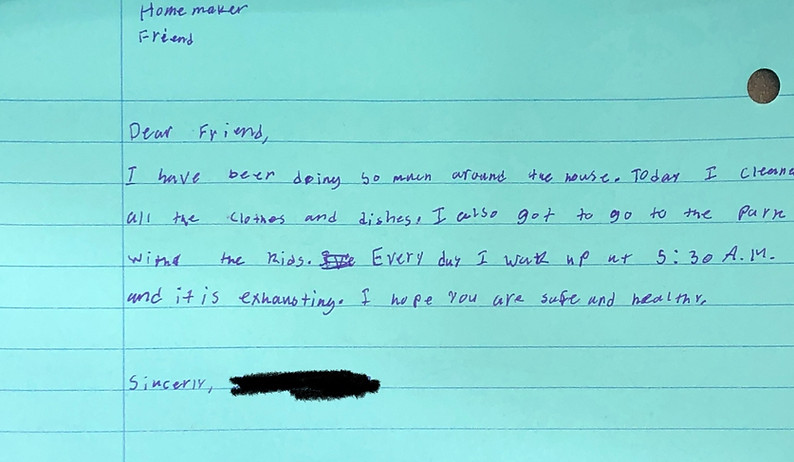 Homemaker
Friend
Dear Friend,
I have been doing so much around the house. Today I cleane
all the clothes and dishes. I also got to go to the park
withd the kids. Every day I wak up at 5:30 A.M.
and it is exhausting. I hope you are safe and healthy.
Sincerly,